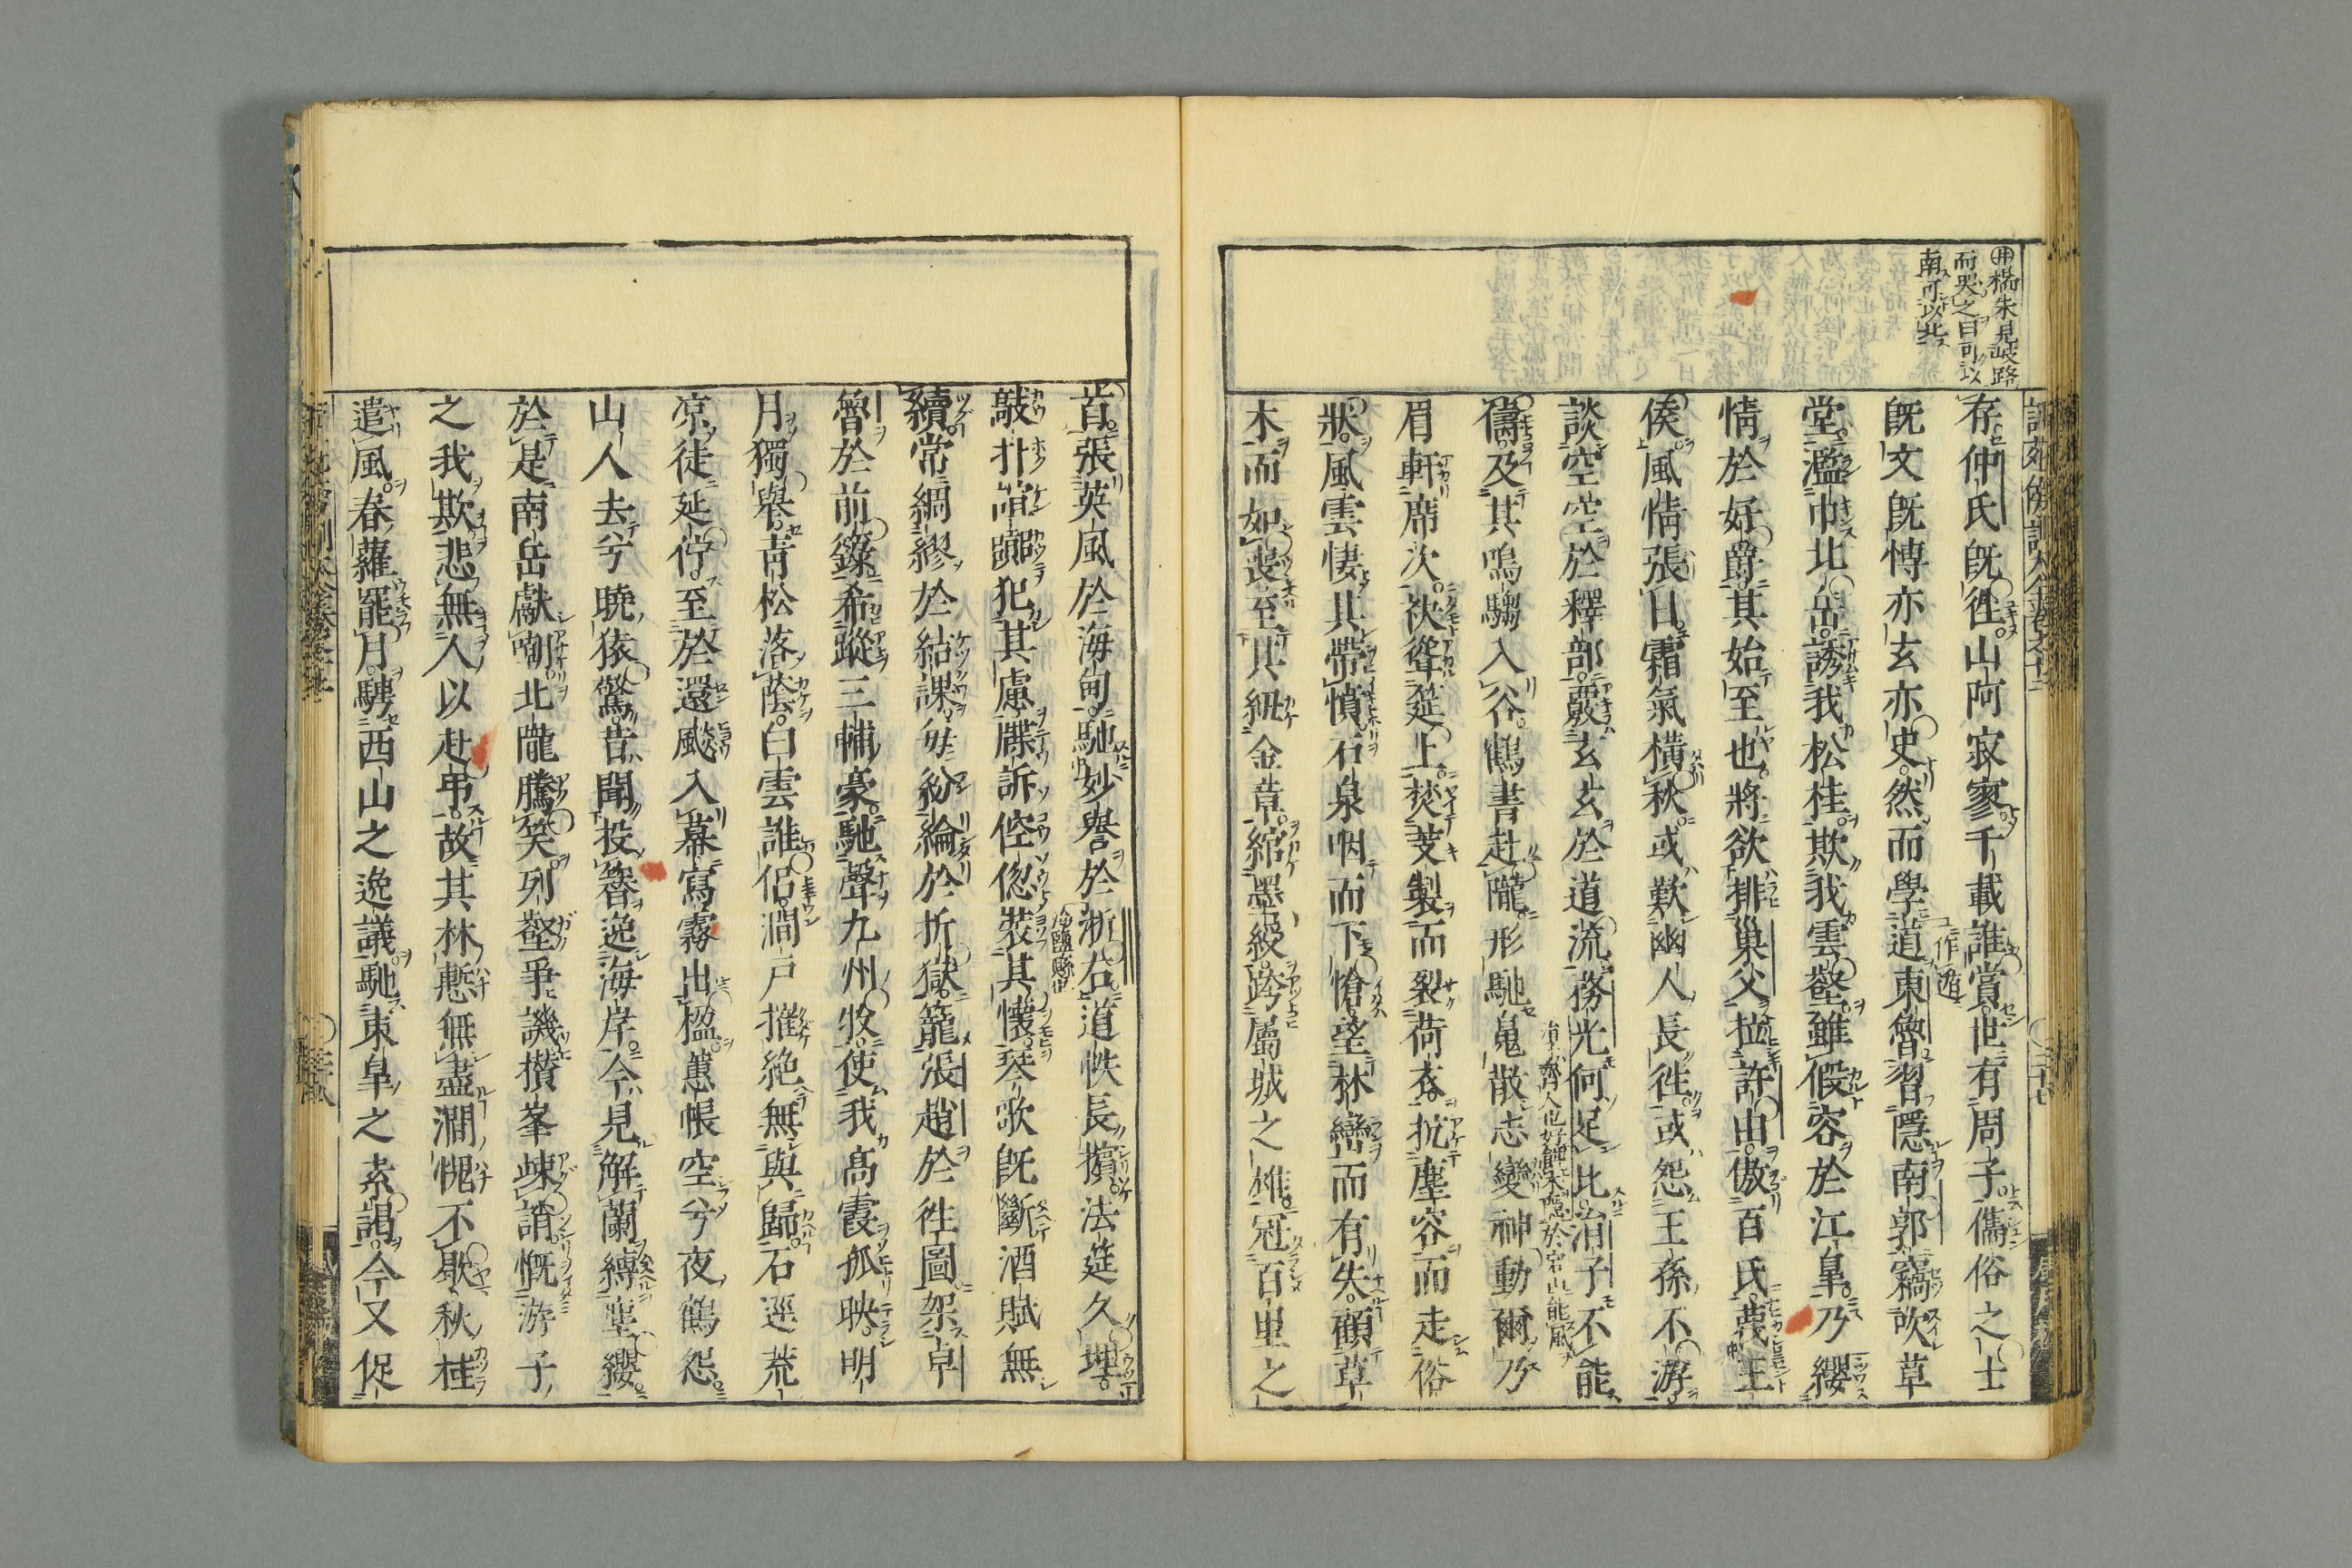 ㊉楊朱見岐路
而哭之曰可以
南可以北
存仲氏既徃山阿寂寥千載誰賞世有周子儁俗之士
既文既愽亦玄亦史然而學道東魯習隱南郭竊吹草
一作遁
堂濫巾北岳誘我松桂欺我雲壑雖假容於江皐乃纓
情於好爵其始至也將欲排巢父拉許由傲百氏蔑王
侯風情張日霜氣橫秋或歎幽人長徃或怨王孫不游
談空空於釋部覈玄玄於道流務光何足比涓子不能
儔及其鳴騶入谷鶴書赴隴形馳鬼散志變神動爾乃
眉軒席次袂聳筵上焚芰製而裂荷衣抗塵容而走俗
狀風雲悽其帶憤石泉咽而下愴望林巒而有失顧草
木而如喪至其紐金章綰墨綬跨屬城之雄冠百里之
首張英風於海甸馳妙譽於浙右道帙長擯法筵久埋
敲扑諠嚻犯其慮牒訴倥偬裝其懷琴歌既斷酒賦無
續常綢繆於結課每紛綸於折獄籠張趙於徃圖架卓
魯於前籙希蹤三輔豪馳聲九州牧使我高霞孤映明
月獨舉青松落蔭白雲誰侶澗戶摧絶無與歸石逕荒
凉徒延佇至於還飈入幕寫霧出楹蕙帳空兮夜鶴怨
山人去兮曉猿驚昔聞投簪逸海岸今見解蘭縛塵纓
於是南岳獻嘲北隴騰笑列壑爭譏攢峯竦誚慨游子
之我欺悲無人以赴弔故其林慙無盡澗愧不歇秋桂
遣風春蘿罷月騁西山之逸議馳東皐之素謁今又促